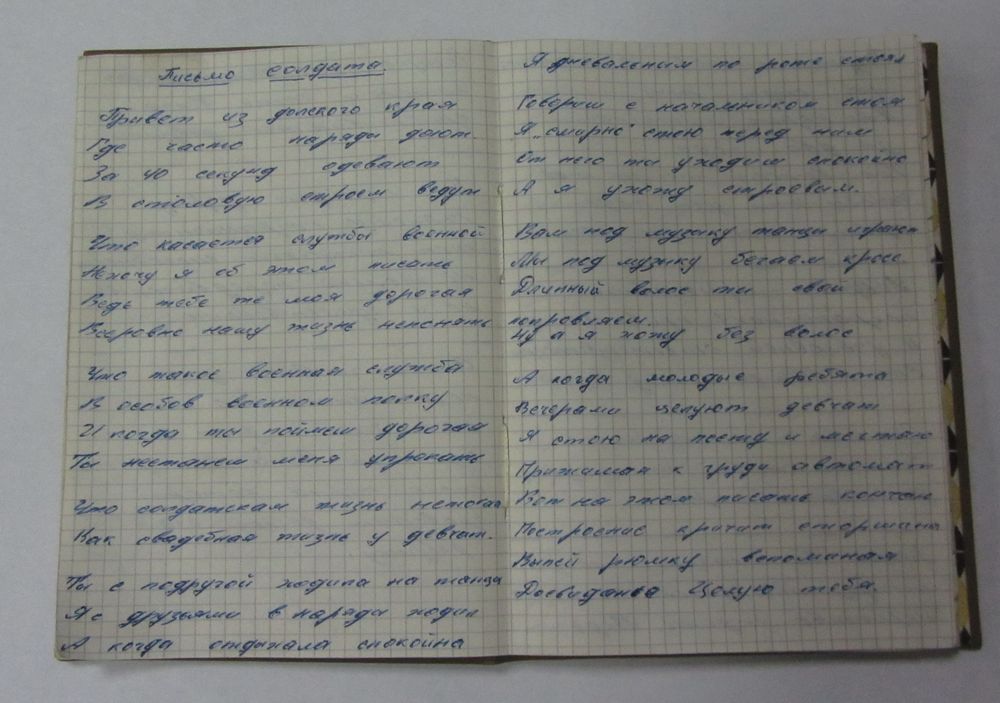 Письмо солдата.
Привет из донского края
Где часто наряды дают.
За 40 секунд одевают
В столовую строем ведут
Что касается службы военной
Нехочу я об этом писать
Ведь тебе же моя дорогая
Всеровно нашу жизнь непонять
Что такое военная служба
В особов военном полку
И когда ты поймеш дорогая
Ты нестанеш меня упрекать
Что солдатская жизнь
Как свадебная жизнь у девчат.
Ты с подругой ходила на танцы
Я с друзьями в наряды ходил
А когда отдыхала спокойна
Я дневальним по роте стоял
Говориш с начальником стоя
Я "смирно" стою перед ним
От него ты уходиш спокойно
А я ухожу строевым.
Вам под музыку танцы играют
Мы под музыку бегаем кросс
Длинный волос ты свой
поправляеш.
Ну а я хожу без волос
А когда молодые ребята
Вечерами целуют девчат
Я стою на посту и мечтаю
Прижимая к груди автомат
Вот на этом писать кончаю
Построение кричит старшина
Выпей рюмку вспоминая
Досвидания Целую тебя.